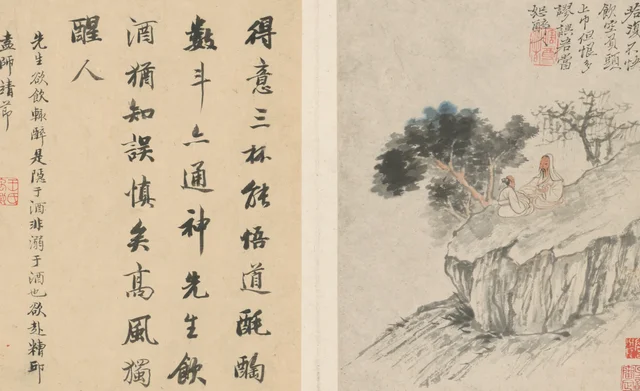 若復不快
飲空負頭
上巾但恨多
謬誤君當
恕醉
得意三杯能悟道酕醄
數斗亦通神先生飲
酒猶知誤慎矣高風獨
醒人
先生欲飲輒醉是隱于酒非溺于酒也欲赴糟邱
盍師靖節